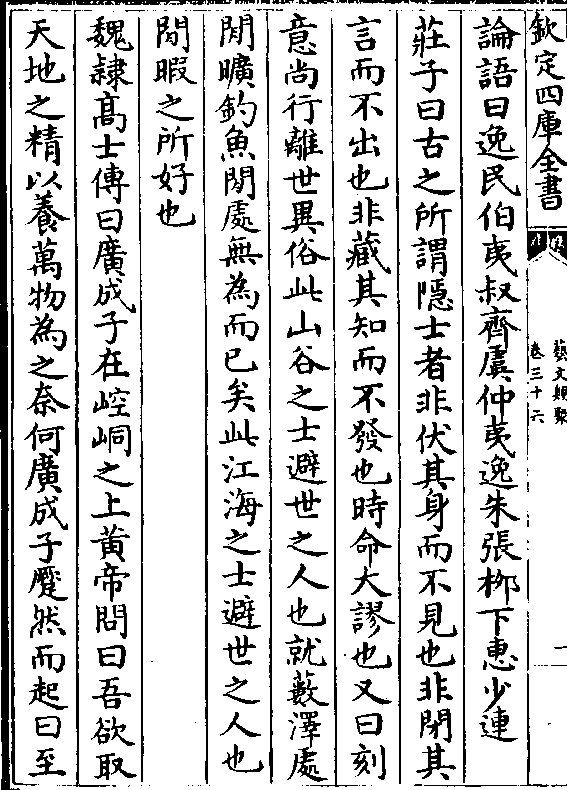 欽定四庫全書
藝文類聚
卷三十六
一
論語曰逸民伯夷叔齊虞仲夷逸朱張栁下惠少連
莊子曰古之所謂隠士者非伏其身而不見也非閉其
言而不出也非藏其知而不發也時命大謬也又曰刻
意尚行離世異俗此山谷之士避世之人也就藪澤處
閒曠釣魚閒處無為而已矣此江海之士避世之人也
閒暇之所好也
魏隷髙士傳曰廣成子在崆峒之上黄帝問曰吾欲取
天地之精以養萬物為之奈何廣成子蹷然而起曰至